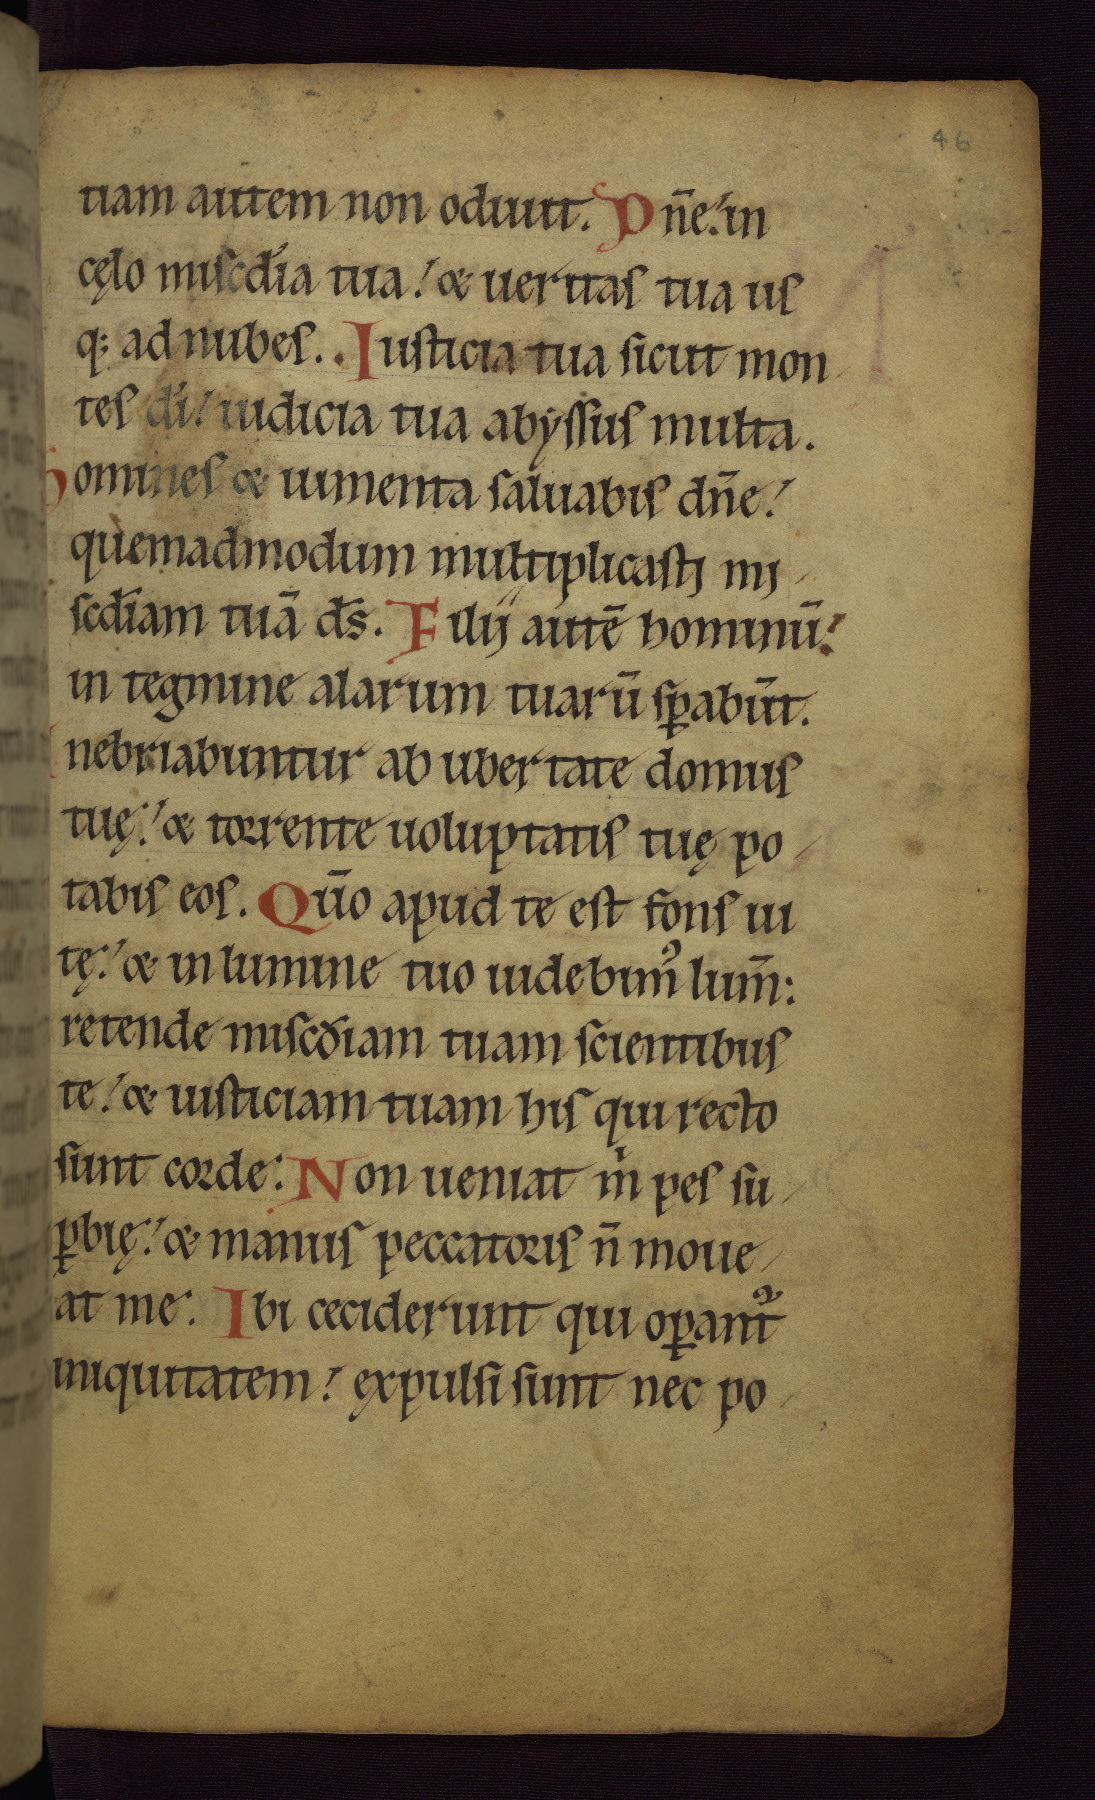 46
tiam autem non odiuit. Dn̄e in
cęlo miscd̄ia tua! & ueritas tua us
q; ad nubes.. Iusticia tua sicut mon
tes di! iudicia tua abyssus multa.
Homines & iumenta saluabis dn̄e!
quemadmodum multiplicasti mi
scd̄iam tuā ds̄. Filii autē hominū!
in tegmine alarum tuarū sꝑabūt.
Inebriabuntur ab ubertate domus
tuę! & torrente uoluptatis tuę po
tabis eos. Qūo apud te est fons ui
tę! & in lumine tuo uidebimꝰ lum̄:
retende miscd̄iam tuam scientibus
te! & iusticiam tuam his qui recto
sunt corde: Non ueniat m̍ pes su
ꝑbię! & manus peccatoris n̄ moue
at me: Ibi ceciderunt qui oꝑant᷑
iniquitatem! expulsi sunt nec po